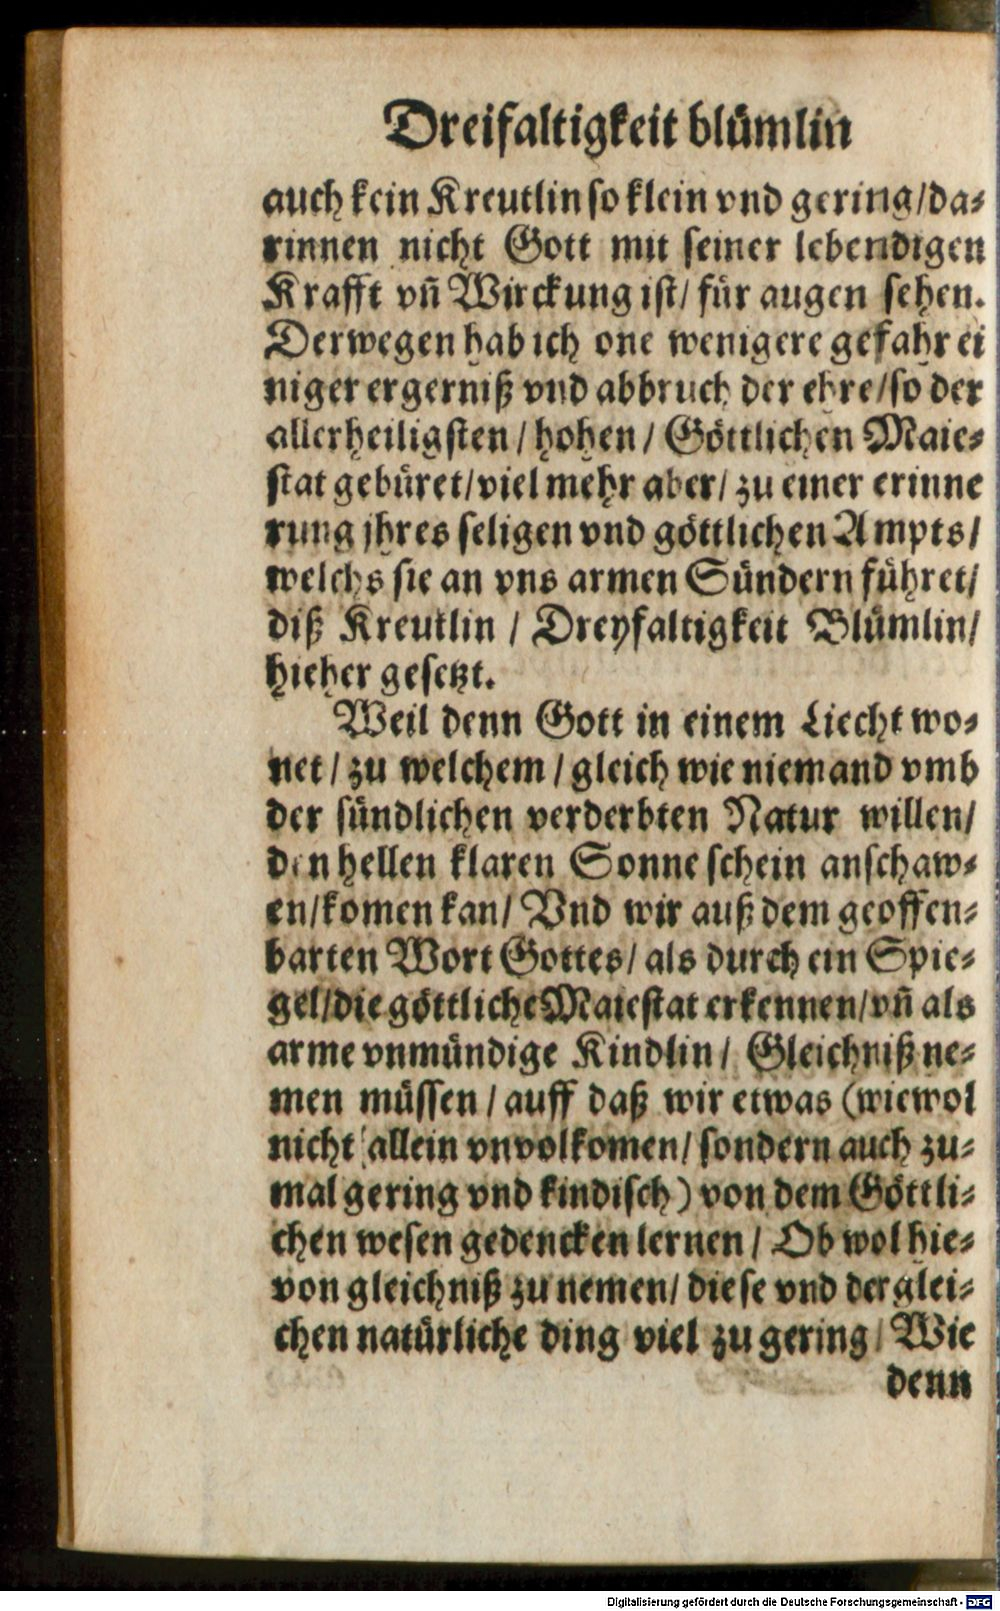 Dreifaltigkeit blümlin
auch kein Kreutlin so klein vnd gering/da-
rinnen nicht Gott mit seiner lebendigen
Krafft vñ Wirckung ist/ für augen sehen.
Derwegen hab ich one wenigere gefahr ei
niger ergerniß vnd abbruch der ehre/so der
allerheiligsten / hohen / Göttlichen Maie-
stat gebüret/viel mehr aber/ zu einer erinne
rung jhres seligen vnd göttlichen Ampts/
welchs sie an vns armen Sündern führet/
diß Kreutlin / Dreyfaltigkeit Blümlin/
hieher gesetzt.
Weil denn Gott in einem Liecht wo-
net / zu welchem / gleich wie niemand vmb
der sündlichen verderbten Natur willen/
den hellen klaren Sonne schein anschaw-
en/komen kan/ Vnd wir auß dem geoffen-
barten Wort Gottes/ als durch ein Spie-
gel/die göttliche Maiestat erkennen/vñ als
arme vnmündige Kindlin / Gleichniß ne-
men müssen / auff daß wir etwas (wiewol
nicht allein vnvolkomen/ sondern auch zu-
mal gering vnd kindisch) von dem Göttli-
chen wesen gedencken lernen / Ob wol hie-
von gleichniß zu nemen/ diese vnd derglei-
chen natürliche ding viel zu gering / Wie
denn
Digitalisierung gefördert durch die Deutsche Forschungsgemeinschaft - DFG